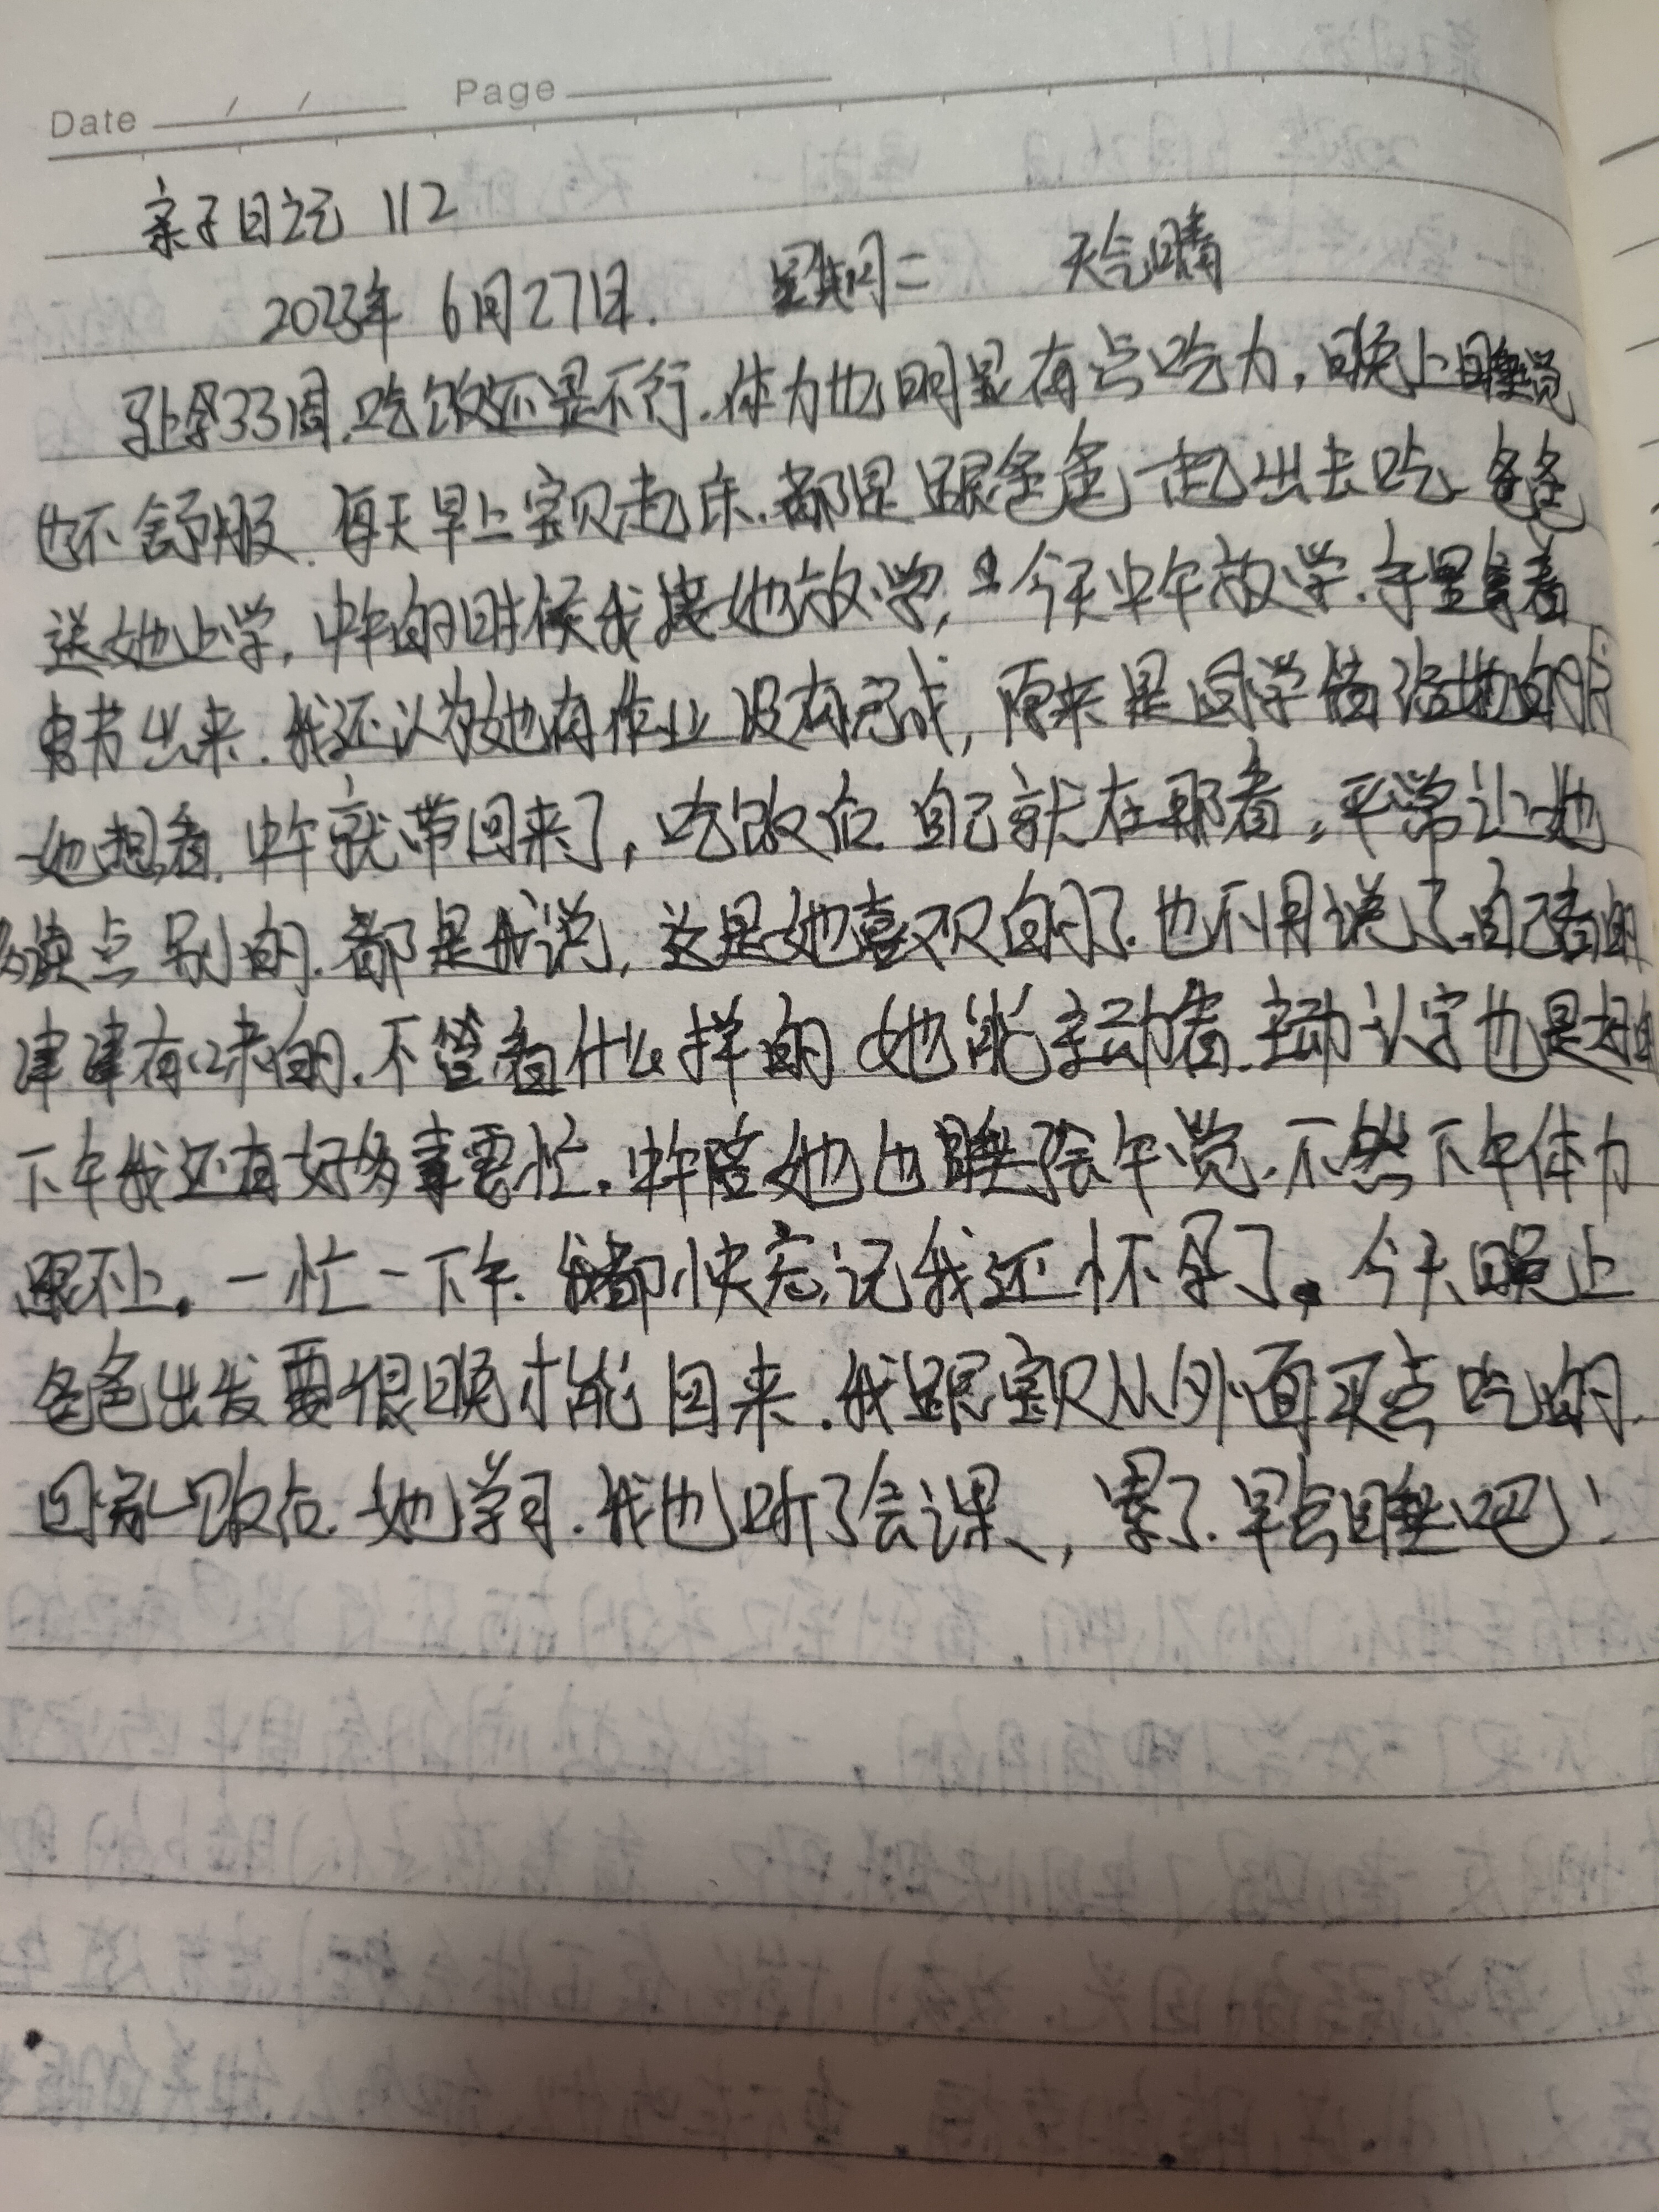 Date / / Page
亲子日记 112
2023年 6月27日. 星期二 天气晴
马上孕33周,吃饭还是不行.体力也明显有点吃力,晚上睡觉
也不舒服.每天早上宝贝起床.都是跟爸爸一起出去吃.爸爸
送她上学,中午的时候我接她放学,今天中午放学.手里拿着
书出来.我还认为她有作业没有完成,原来是同学借给她的
她想看.中午就带回来了,吃饭后自己就在那看,平常让她
读点别的.都是我说,这是她喜欢的了.也不用说了.自己看的
津津有味的.不管看什么样的 她能主动看.主动认字也是
下午我还有好多事要忙.中午陪她也睡会午觉.不然下午体力
跟不上.一忙一下午.我都快忘记我还怀孕了.今天晚上
爸爸出发要很晚才能回来.我跟宝贝从外面买点吃的.
回家饭后.她学习.我也听了会课,累了.早点睡吧!